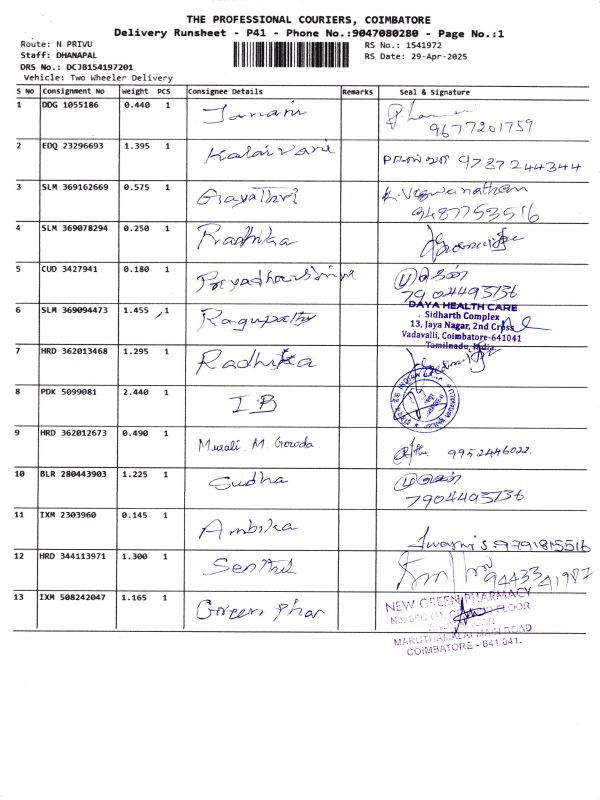 THE PROFESSIONAL COURIERS, COIMBATORE
Delivery Runsheet - P41 - Phone No.:9047080280 - Page No.:1
Route: N PRIVU
Staff: DHANAPAL
DRS No.: DCJB154197201
Vehicle: Two Wheeler Delivery
RS No.: 1541972
RS Date: 29-Apr-2025
S No Consignment No Weight PCS Consignee Details Remarks Seal & Signature
1 DDG 1055186 0.440 1 Janani
9677201759
2 EDQ 23296693 1.395 1 Kalaivani 9787244344
3 SLM 369162669 0.575 1 Gayathri K. Viswanathan
9487753516
4 SLM 369078294 0.250 1 Radhika
5 CUD 3427941 0.180 1 Priyadharshiniya
7904493736
6 SLM 369094473 1.455 1 Ragupathy
DAYA HEALTH CARE
Sidharth Complex
13, Jaya Nagar, 2nd Cross
Vadavalli, Coimbatore-641041
Tamilnadu, India
7 HRD 362013468 1.295 1 Radhika
8 PDK 5099081 2.440 1 IB
9 HRD 362012673 0.490 1 Murali. M. Gowda 9952446022
10 BLR 280443903 1.225 1 Sudha
7904493736
11 IXM 2303960 0.145 1 Ambika
9791815516
12 HRD 344113971 1.300 1 Senthil
9443341987
13 IXM 508242047 1.165 1 Green Phar
NEW GREEN PHARMACY
FLOOR
MARUTHAMALAI MAIN ROAD
COIMBATORE - 641 041.